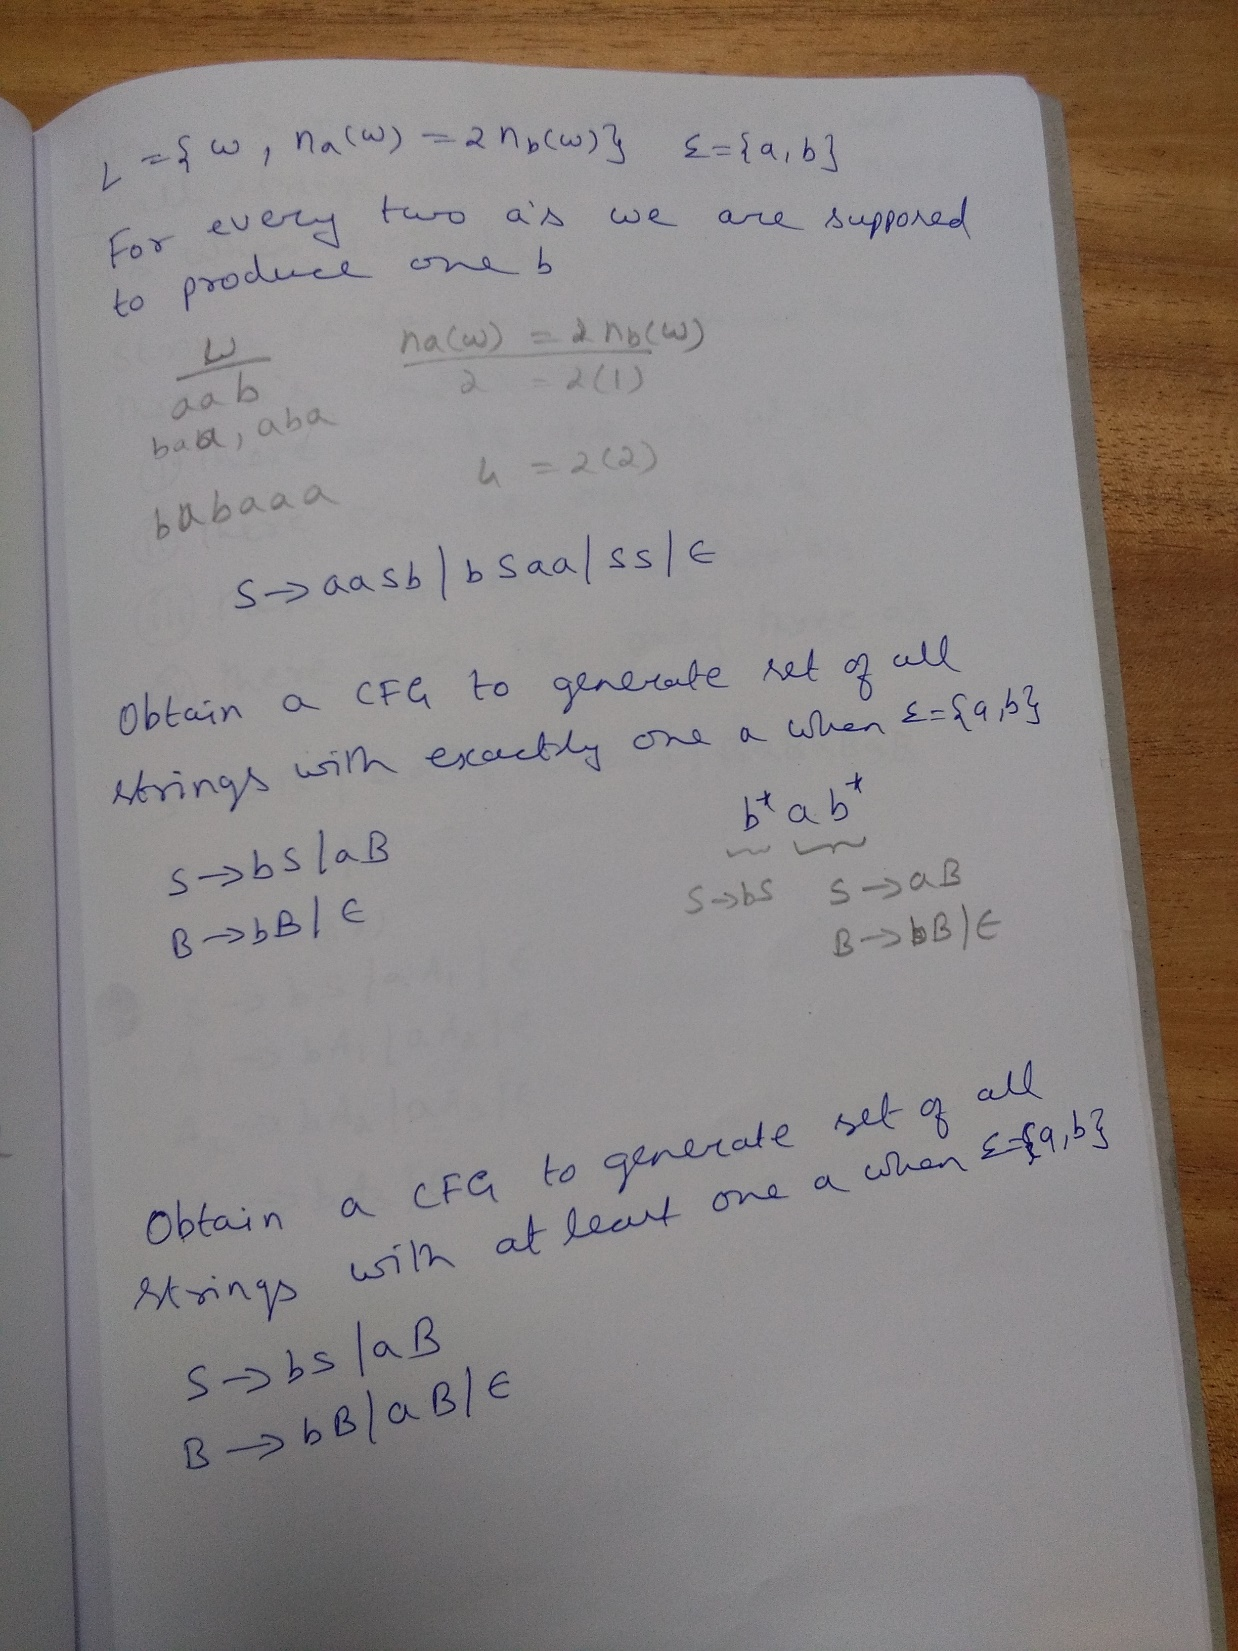 L = { w , na(w) = 2 nb(w)} Σ={a,b}
For every two a's we are supposed
to produce one b
w na(w) = 2 nb(w)
aab 2 = 2(1)
baa, aba
4 = 2(2)
babaaa
S→aaSb | bSaa | SS | ∈
Obtain a CFG to generate set of all
strings with exactly one a when Σ={a,b}
b* a b*
S→bS | aB
S→bS S→aB
B→bB | ∈
B→bB | ∈
Obtain a CFG to generate set of all
strings with at least one a when Σ={a,b}
S→bS | aB
B→bB | aB | ∈